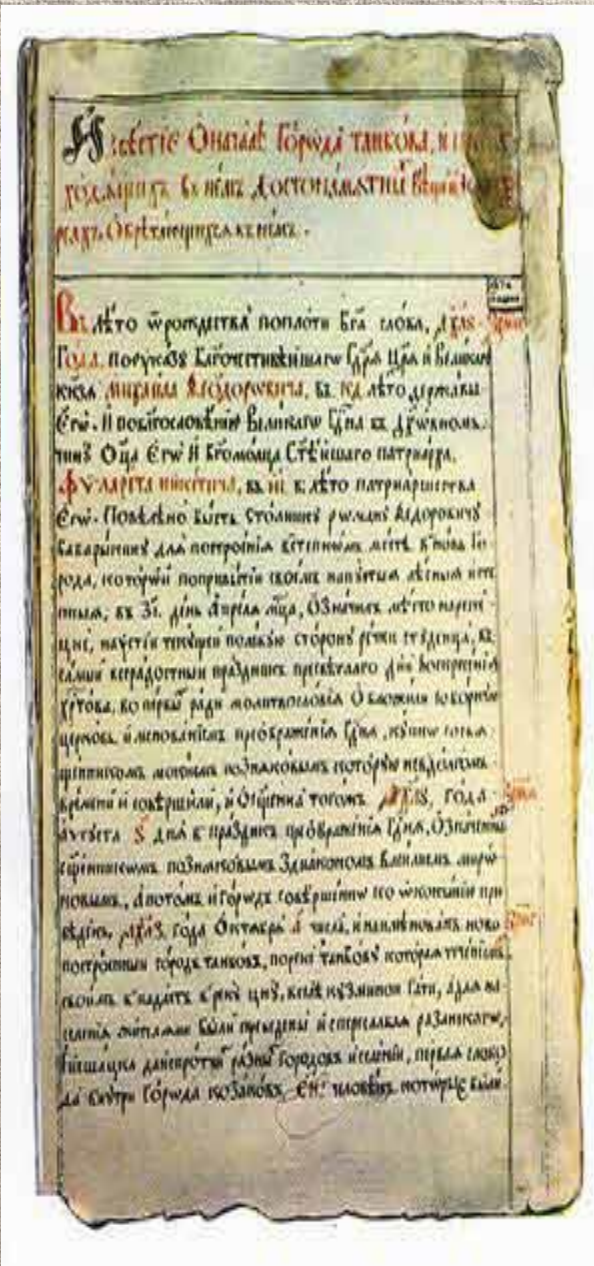 Извѣстіе Ѡначалѣ Гѡрода танбо́ва, и
ходѧщихъ внемъ достопамѧтны вещей
рѧхъ, Обрѣтающихсѧ внемъ.
Въ лѣто ѿрождества поплоти бг҃а слова, ҂ахлѕ
Года. поуказу благочестивѣйшагѡ гдр҃ѧ цр҃ѧ и великагѡ
кнѕѧ михаила Ѳеодоровича, въ кд лѣто державы
Егѡ. И поблгословенію Великагѡ гдн҃а въ дх҃овномъ
чину Оц҃а Егѡ И бг҃омолца ст҃ѣйшаго патриарха,
Фуларета никитича, въ в лѣто патриаршества
Егѡ. Повелѣно бысть столнику рѡману Ѳедоровичу
бабарыкину для построенія встепномъ местѣ внова Го
рода, которы поприбытіи своемъ напустыѧ лѣсныѧ исте
пныѧ, въ зі день апрелѧ мц҃а, Означилъ мѣсто нареке
цнѣ, наустіи текущей полскую сторону речки студенца, въ
самый всерадостный праздникъ пресвѣтлаго дн҃ѧ воскресеніѧ
хр҃това, во первы ради молитвословіѧ Обложили соборную
церковь именованіемъ преображеніѧ гдн҃ѧ, купнѡ сосвѧ
щенникомъ позняковымъ которую
времени и совершили, и Ѡсщенна тогожъ ҂ахлѕ, года
августа ѕ днѧ в праздникъ преображеніѧ гдн҃ѧ, Означенны
сщ҃енникомъ позняковымъ здиакономъ василіемъ мирѡ
новымъ, а потомъ и гѡродъ совершеннѡ ко ѡкончанію при
веденъ, ҂ахлѕ года Октѧбрѧ а числа, и наименованъ ново
построенныи городъ танбовъ, порекѣ танбову которая теченіемъ
своимъ впадаетъ вреку цну, Кузминой гати, адля на
селеніѧ жителями были преведены
и протчи разны городовъ иселеніи, первая слобо
да внутри гѡрода козаковъ, человѣкъ которые были